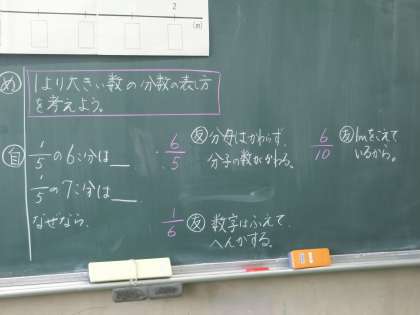 2
(m)
め 1より大きい数の分数の表し方
を考えよう。
自 1/5の6こ分は＿
1/5の7こ分は＿
なぜなら、
6/5 友 分母はかわらず、
分子の数がかわる。
1/6 友 数字はふえて、
へんかする。
6/10 友 1mをこえて
いるから。